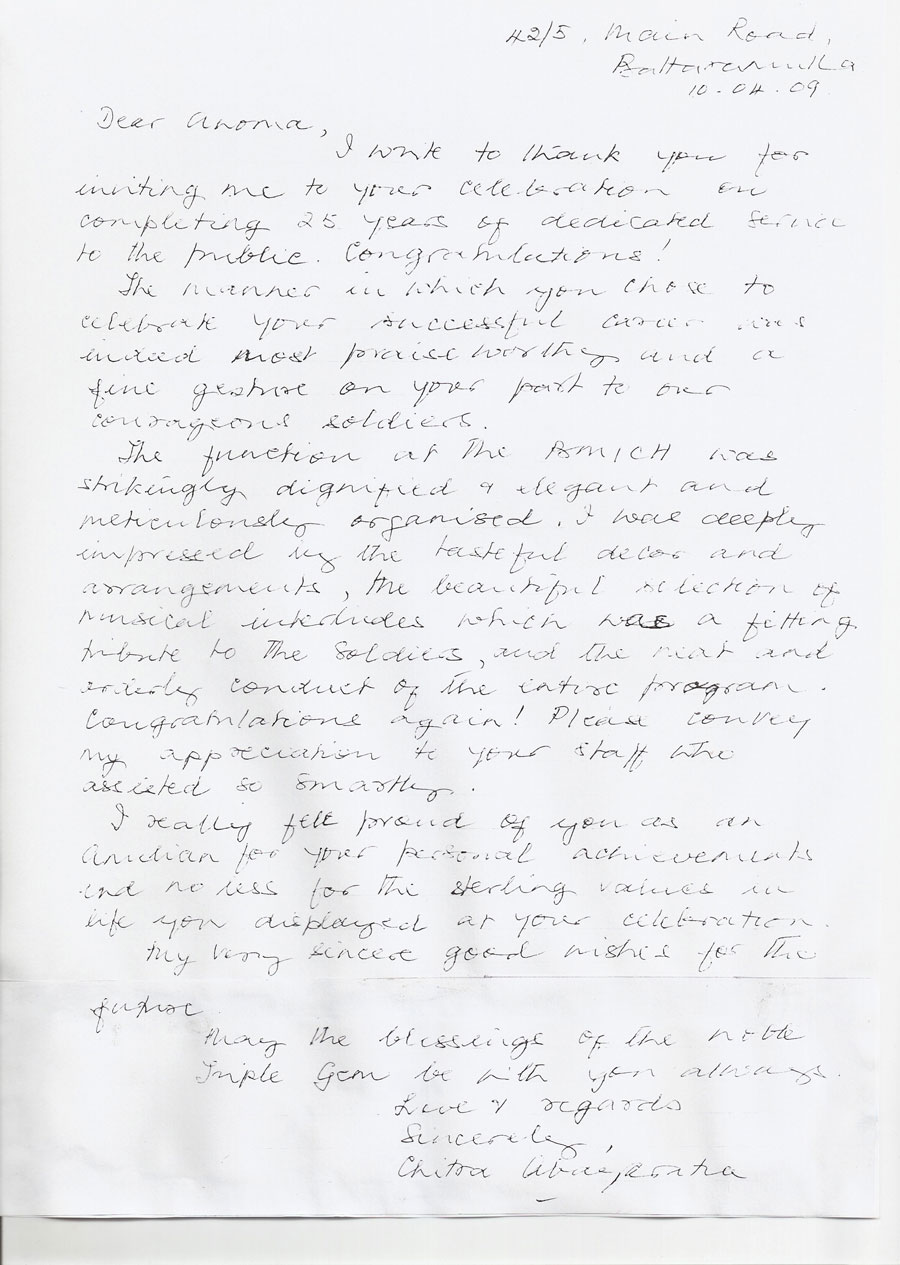 42/5, Main Road,
Battaramulla
10.04.09
Dear Anoma,
I write to thank you for
inviting me to your celebration on
completing 25 years of dedicated service
to the public. Congratulations!
The manner in which you chose to
celebrate your successful career was
indeed most praiseworthy and a
fine gesture on your part to our
courageous soldiers.
The function at the BMICH was
strikingly dignified & elegant and
meticulously organised. I was deeply
impressed by the tasteful decor and
arrangements, the beautiful selection of
musical interludes which was a fitting
tribute to the Soldiers, and the neat and
orderly conduct of the entire program.
Congratulations again! Please convey
my appreciation to your staff who
assisted so smartly.
I really felt proud of you as an
Anulian for your personal achievements
and no less for the sterling values in
life you displayed at your celebration.
My very sincere good wishes for the
future
May the blessings of the noble
Triple Gem be with you always.
Love & regards
Sincerely,
Chitra